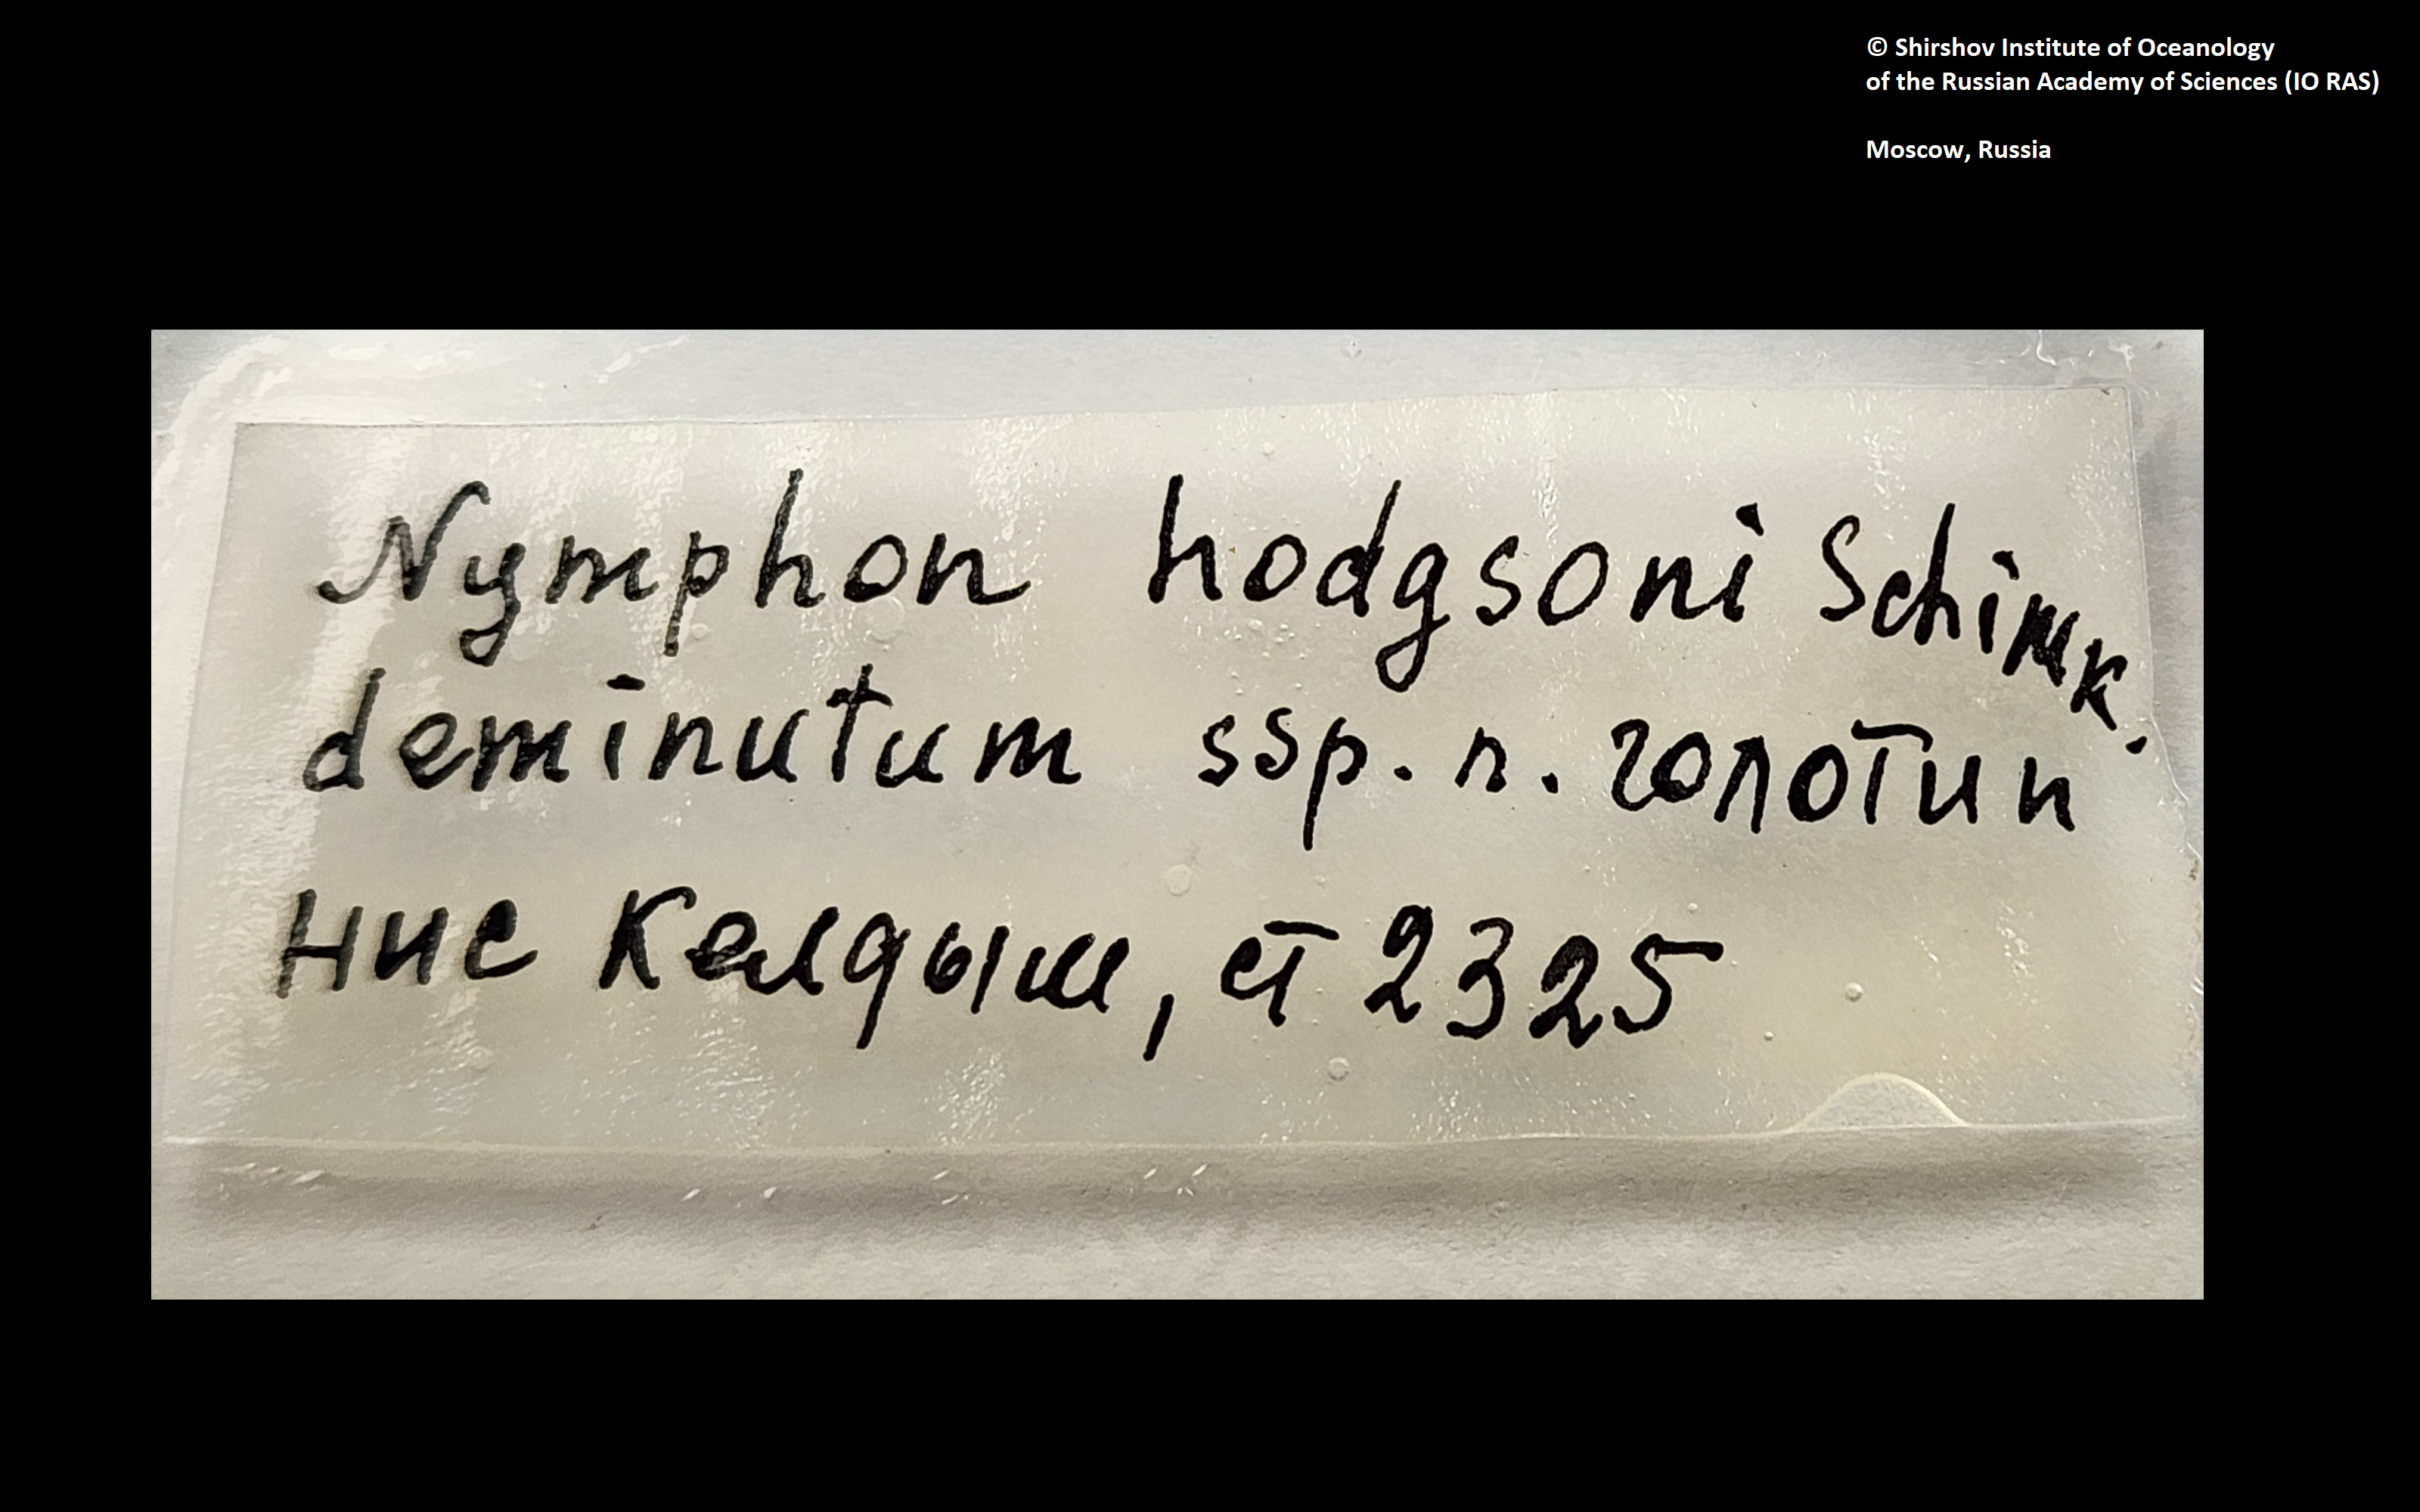 © Shirshov Institute of Oceanology
of the Russian Academy of Sciences (IO RAS)
Moscow, Russia
Nymphon hodgsoni Schimk.
deminutum ssp. n. голотип
нис Келдыш, ст 2325